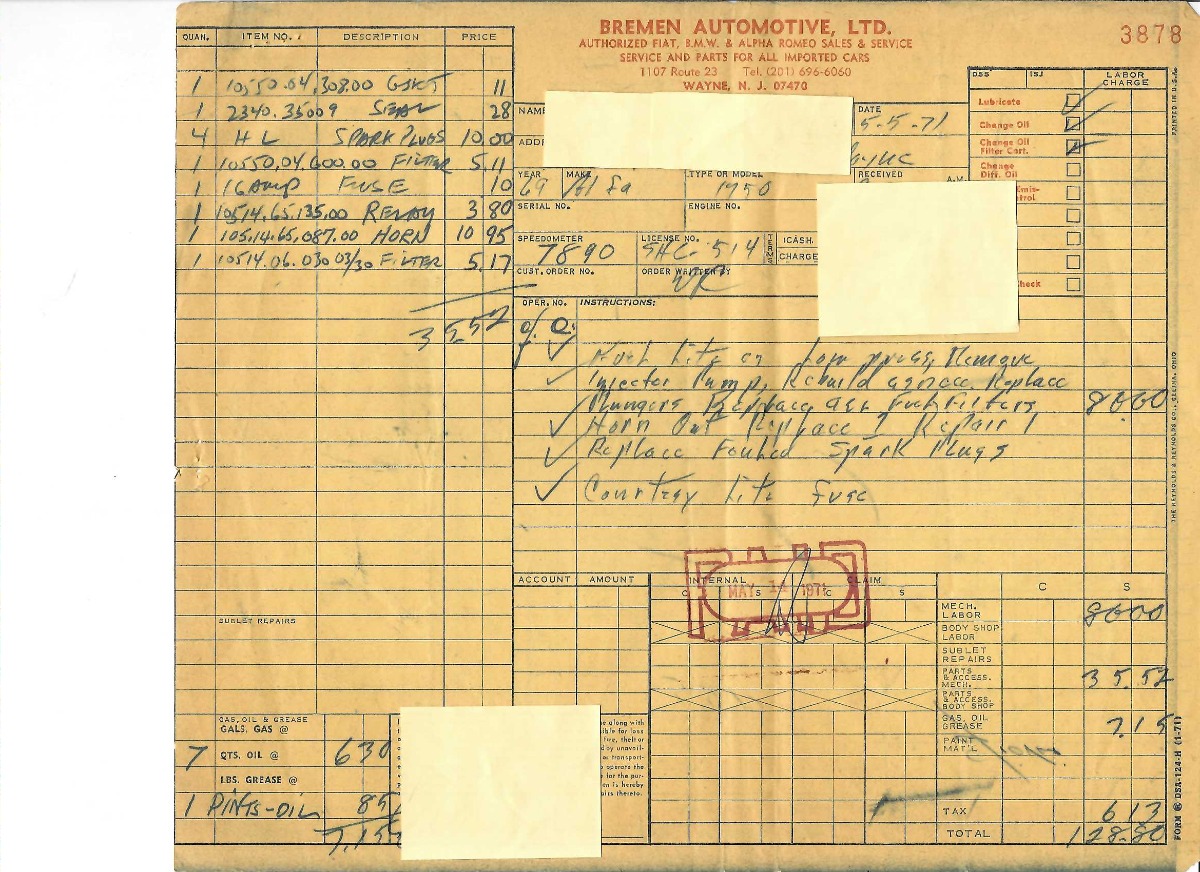 BREMEN AUTOMOTIVE, LTD.
AUTHORIZED FIAT, B.M.W. & ALPHA ROMEO SALES & SERVICE
SERVICE AND PARTS FOR ALL IMPORTED CARS
1107 Route 23 Tel. (201) 696-6060
WAYNE, N. J. 07470
3878
QUAN. ITEM NO. DESCRIPTION PRICE
1 10550.04,308.00 GSKT 11
1 2340.35009 SEAL 28
4 H L SPARK PLUGS 10.00
1 10550.04.600.00 FILTER 5.11
1 16 AMP FUSE 10
1 10514.65.135.00 RELAY 3 80
1 10514.65.087.00 HORN 10 95
1 10514.06.030 03/30 FILTER 5.17
35.52
SUBLET REPAIRS
GAS, OIL & GREASE
GALS. GAS @
7 QTS. OIL @ 630
LBS. GREASE @
1 PINTS-OIL 85
7.15
NAME
DATE
5-5-71
ADD
YEAR MAKE TYPE OR MODEL RECEIVED A.M.
69 Alfa 1750
SERIAL NO. ENGINE NO.
SPEEDOMETER LICENSE NO. TERMS CASH
7890 514 CHARGE
CUST. ORDER NO. ORDER WRITTEN BY
WR
DSS ISJ LABOR CHARGE
Lubricate
Change Oil
Change Oil Filter Cart.
Change Diff. Oil
OPER. NO. INSTRUCTIONS:
Fuel Lite on Low press, Remove
Injector Pump, Rebuild Replace
Plungers Replace Fuel Filters 80.00
Horn Out Replace Repair
Replace Fouled Spark Plugs
Courtesy Lite fuse
ACCOUNT AMOUNT INTERNAL CLAIM
C S C S C S
MAY 14 1971
MECH. LABOR 8000
BODY SHOP LABOR
SUBLET REPAIRS
PARTS & ACCESS. MECH. 35.52
PARTS & ACCESS. BODY SHOP
GAS, OIL GREASE 7.15
PAINT MAT'L
TAX 6 13
TOTAL 128.80
e along with
PRINTED IN U.S.A.
THE REYNOLDS & REYNOLDS CO., CELINA, OHIO
FORM DSA-124-H (1-71)